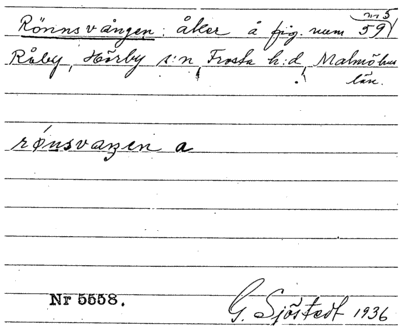 nr 5
Rönnsvången: åker å fig. num 59
Råby, Hörby s:n, Frosta h:d, Malmöhus
län.
rønsvaŋen a
Nr 5558.
G. Sjöstedt 1936